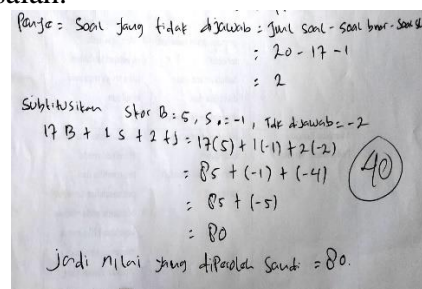 salah.
Panjc = Soal yang tidak dijawab = Juml soal - soal bnar - soal sl
= 20 - 17 - 1
= 2
Sublitusikan Skor B = 5, S = -1, Tdk dijawab = -2
17 B + 1 S + 2 tj = 17(5) + 1(-1) + 2(-2)
= 85 + (-1) + (-4)
= 85 + (-5)
= 80
40
jadi nilai yang diperoleh Sandi = 80.